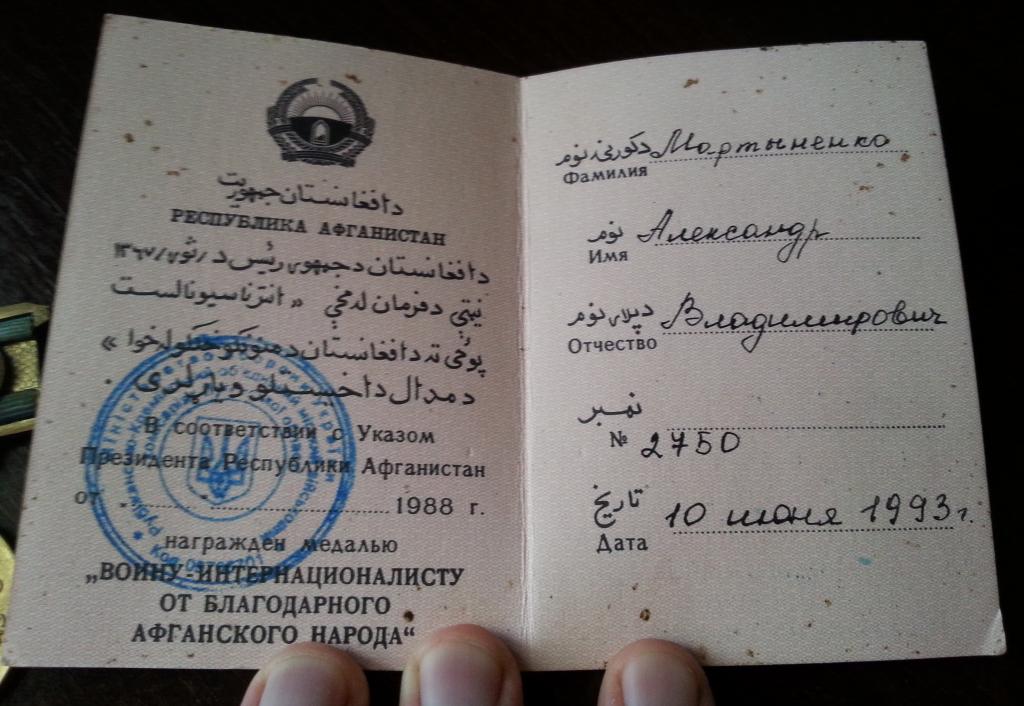 د افغانستان جمهوریت
РЕСПУБЛИКА АФГАНИСТАН
د افغانستان د جمهوری رئیس د
نیټې د فرمان له مخې « انترناسیونالست
د مدال
В соответствии с Указом
Президента Республики Афганистан
от 1988 г.
награжден медалью
„ВОИНУ-ИНТЕРНАЦИОНАЛИСТУ
ОТ БЛАГОДАРНОГО
АФГАНСКОГО НАРОДА“
د کورنۍ نوم Мартыненко
Фамилия
نوم Александр
Имя
د پلار نوم Владимирович
Отчество
نمبر
№ 2750
تاریخ 10 июня 1993 г.
Дата